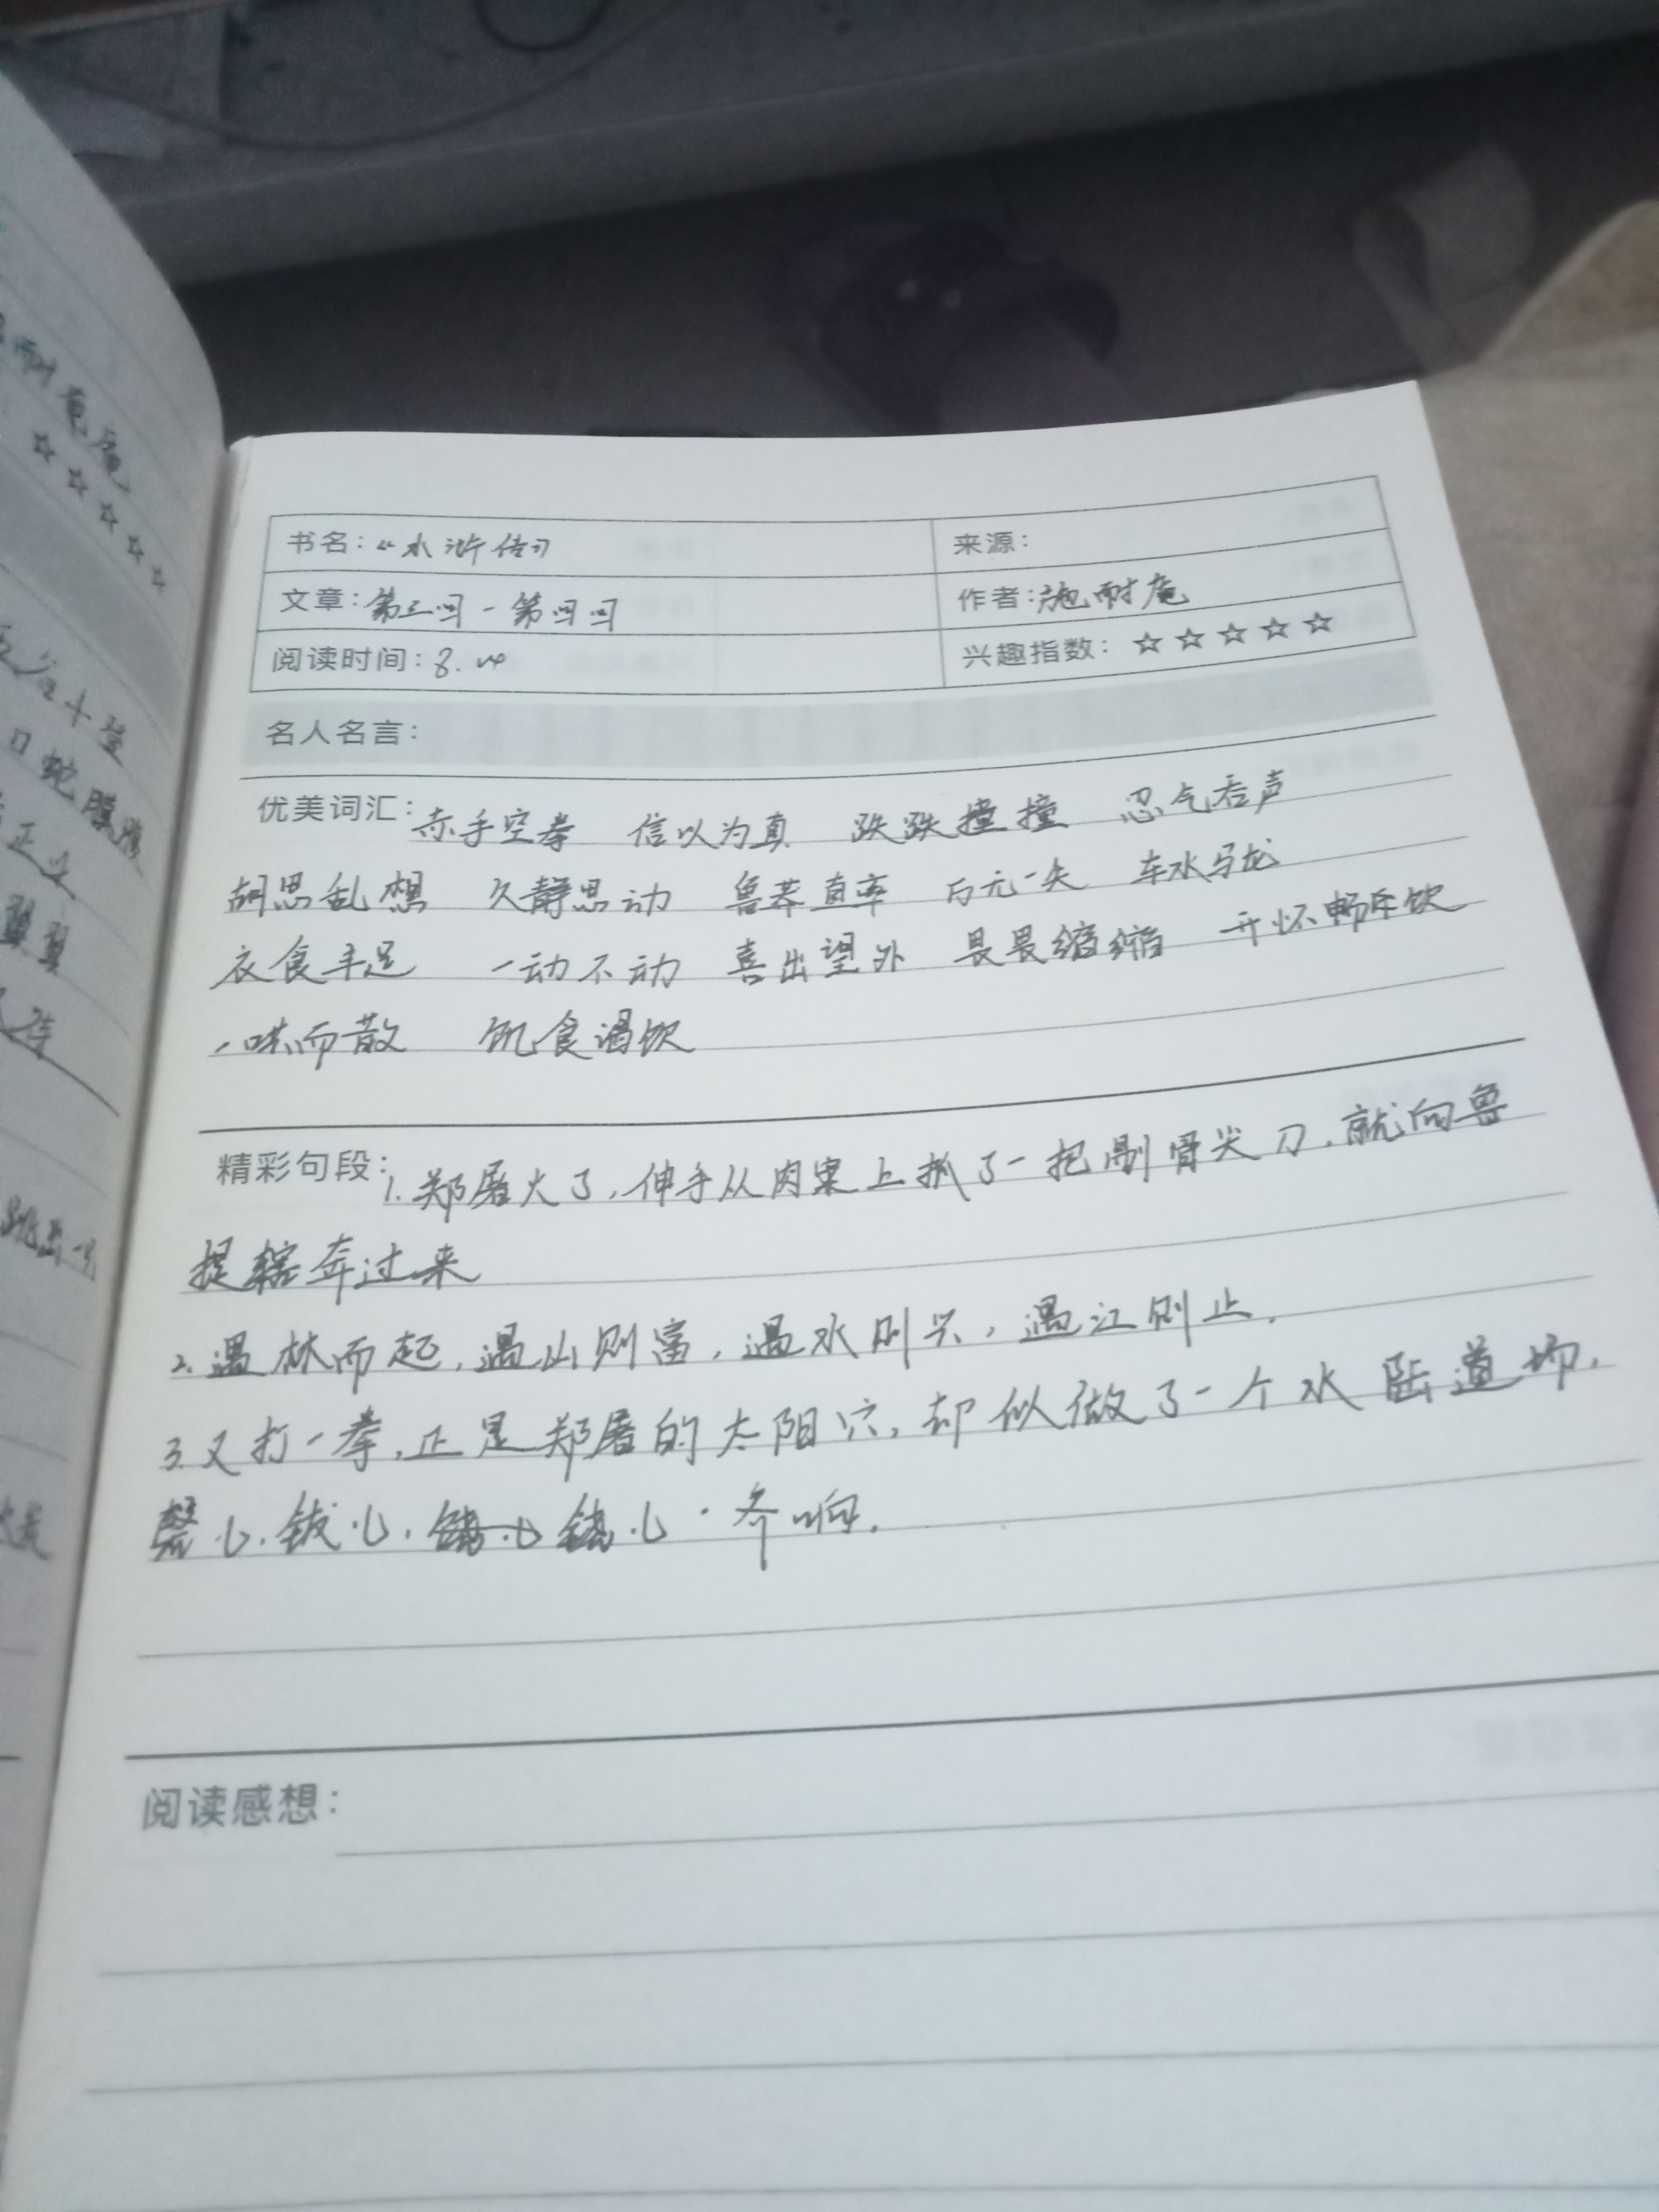 耐庵
☆☆☆☆☆
书名：《水浒传》
来源：
文章：第三回-第四回
作者：施耐庵
阅读时间：8.
兴趣指数：☆☆☆☆☆
名人名言：
优美词汇：赤手空拳 信以为真 跌跌撞撞 忍气吞声
胡思乱想 久静思动 鲁莽直率 万无一失 车水马龙
衣食丰足 一动不动 喜出望外 畏畏缩缩 开怀畅饮
一哄而散 饥食渴饮
精彩句段：1.郑屠火了，伸手从肉案上抓了一把剔骨尖刀，就向鲁
提辖奔过来
2.遇林而起，遇山则富，遇水则兴，遇江则止.
3.又打一拳，正是郑屠的太阳穴，却似做了一个水陆道场，
磬儿，钹儿，铙儿 一齐响.
阅读感想：